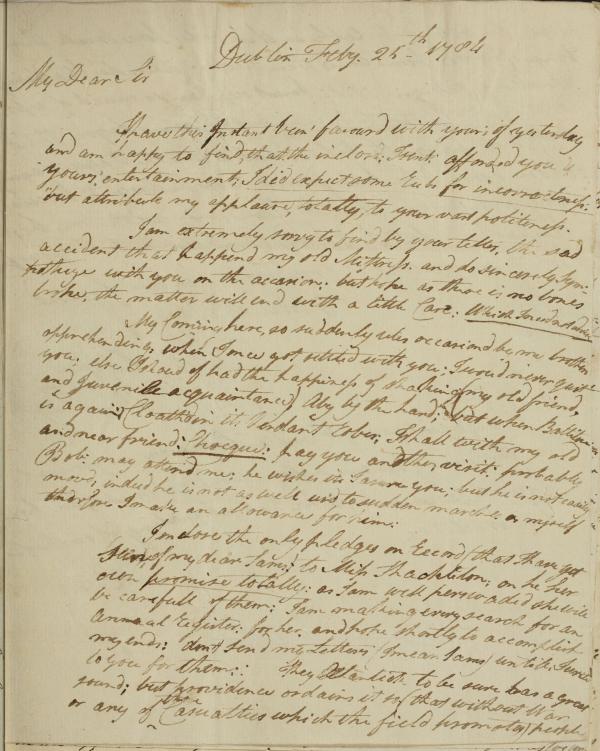 Dublin Feby. 25th 1784
My Dear Sir
I have this Instant been favourd with yours of yesterday
and am happy to find, that the inclosd I sent afforded you &
yours; entertainment; I did expect some Rubs for incorrectness:
but attribute my applause, totally, to your vast politeness.
I am extremely sorry to find by your letter, the sad
accident that happend my old Mistress, and do sincerely Sym-
pathize with you on the occasion: but hope as there is no bones
broke, the matter will end with a little Care:
My Coming here, so suddenly was occasiond by my brothers
apprehending when I once got settled with you: I would never quite
you: else I should of had the happiness of shaking (my old friend,
and Juvenile acquaintance) Aby by the hand; but when
is again Cloath'd in its Verdant Robes, I shall with my old
and near friend: pay you another visit: probably
Bob: may attend me: he wishes it I asure you: but he is not easily
moved, indeed he is not as well used to sudden marches as myself
therefore I make an allowance for him:
I inclose the only pledges on Record (that I have got
of my dear Sams: to Miss Shackleton; on her
own promise totally: as I am well perswaded she will
be carefull of them: I am making every search for an
Annual Register: for her, and hope shortly to accomplish
my ends: don't send my letters (I mean Sams) until I write
to you for them: They to be sure has a great
sound; but providence ordains it so (that without War
or any of the Casualties which the field promotes) people